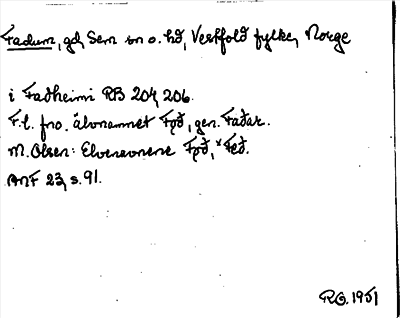 Fadum, gd, Sem sn o. hd, Vestfold fylke, Norge
i Faðheimi RB 204, 206.
F.l. fno. älvnamnet Fǫð, gen. Faðar.
M. Olsen: Elvenavnene Fǫð, *Feð.
ANF 23, s. 91.
RO. 1951